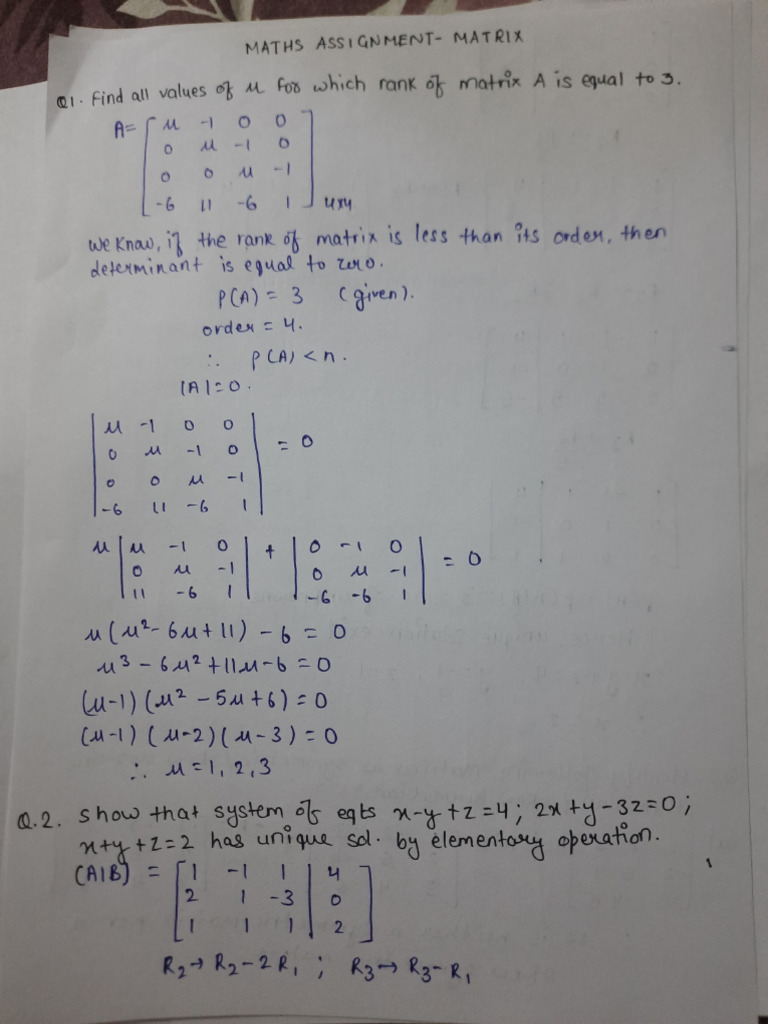 MATHS ASSIGNMENT- MATRIX
Q1. Find all values of μ for which rank of matrix A is equal to 3.
A= [ μ -1 0 0
0 μ -1 0
0 0 μ -1
-6 11 -6 1 ] 4x4
We Know, if the rank of matrix is less than its order, then
determinant is equal to zero.
ρ(A) = 3 (given).
order = 4.
∴ ρ(A) < n.
|A|=0.
| μ -1 0 0 |
| 0 μ -1 0 | = 0
| 0 0 μ -1 |
| -6 11 -6 1 |
μ | μ -1 0 | + | 0 -1 0 | = 0
| 0 μ -1 | | 0 μ -1 |
| 11 -6 1 | | -6 -6 1 |
μ(μ²-6μ+11) - 6 = 0
μ³ - 6μ² + 11μ - 6 = 0
(μ-1)(μ² - 5μ + 6) = 0
(μ-1)(μ-2)(μ-3) = 0
∴ μ = 1, 2, 3
Q.2. Show that system of eqts x-y+z=4; 2x+y-3z=0;
x+y+z=2 has unique sol. by elementary operation.
(A|B) = [ 1 -1 1 | 4
2 1 -3 | 0
1 1 1 | 2 ]
R₂→ R₂-2R₁ ; R₃→ R₃-R₁